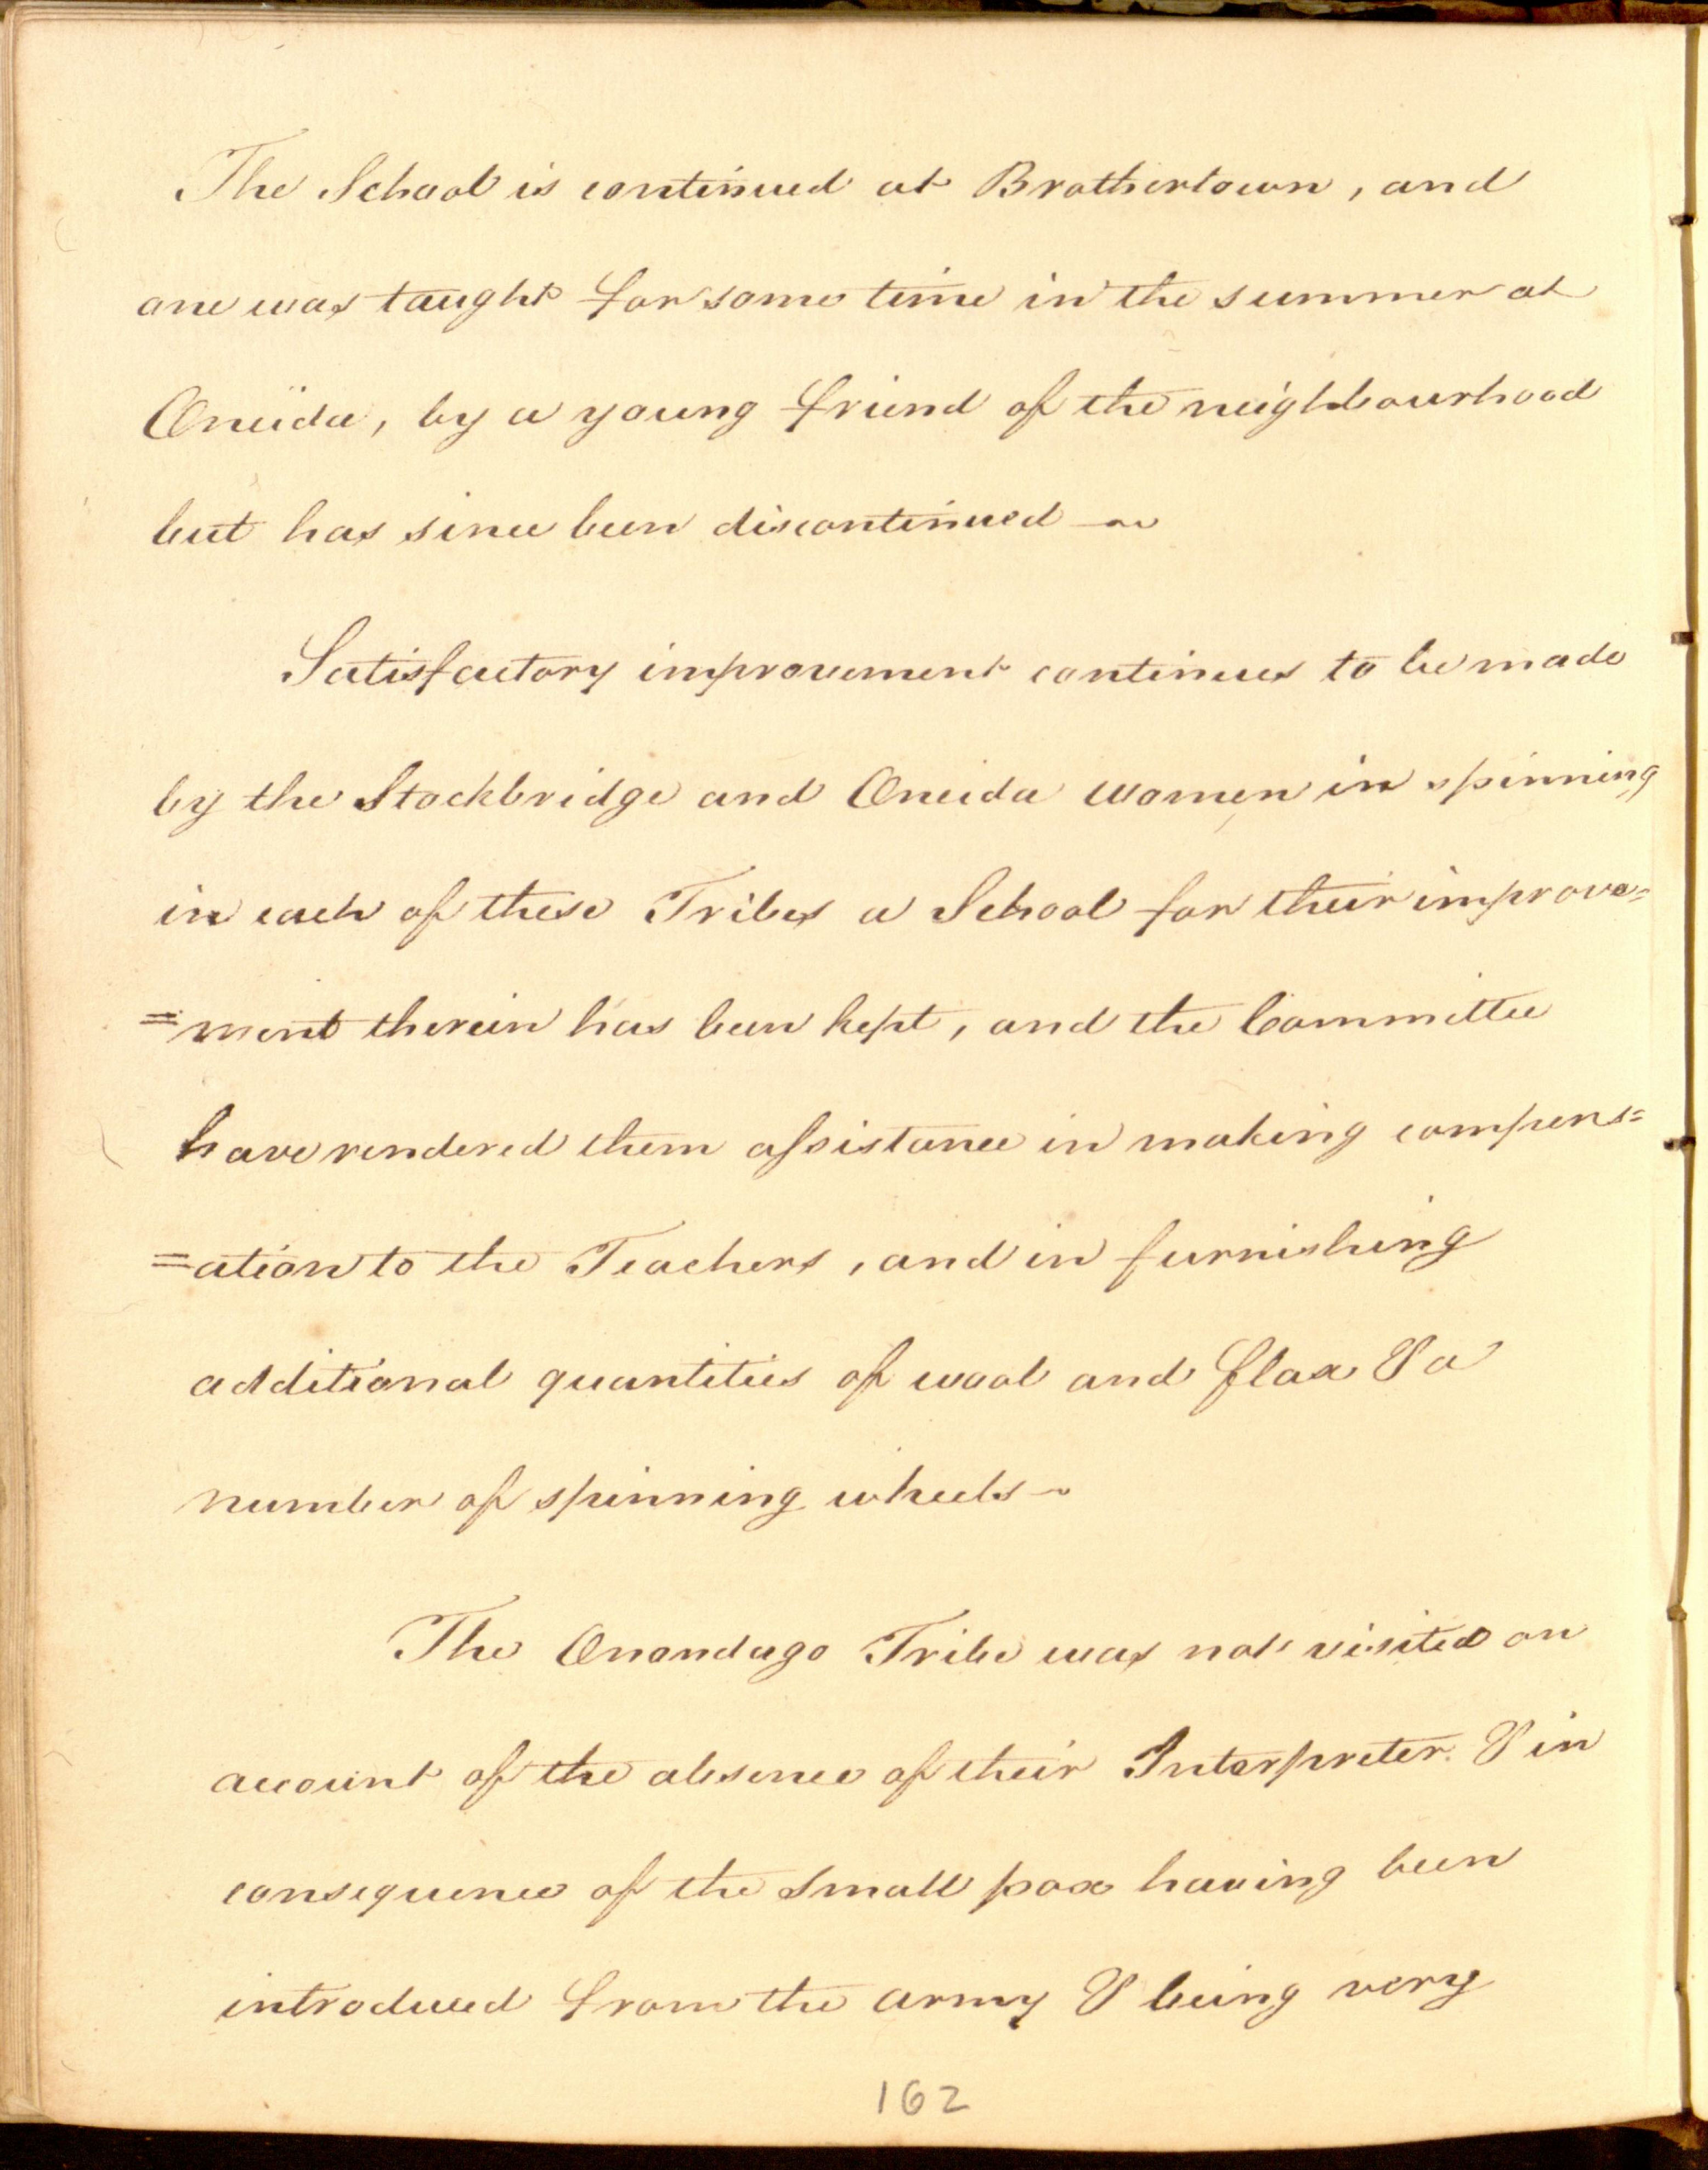 The School is continued at Brothertown, and
one was taught for some time in the summer at
Oneida, by a young friend of the neighbourhood
but has since been discontinued ~
Satisfactory improvement continues to be made
by the Stockbridge and Oneida women in spinning
in each of these Tribes a School for their improve=
=ment therein has been kept, and the Committee
have rendered them assistance in making compens=
=ation to the Teachers, and in furnishing
additional quantities of wool and flax & a
number of spinning wheels ~
The Onondago Tribe was not visited on
account of the absence of their Interpreter. & in
consequence of the small pox having been
introduced from the army & being very
162